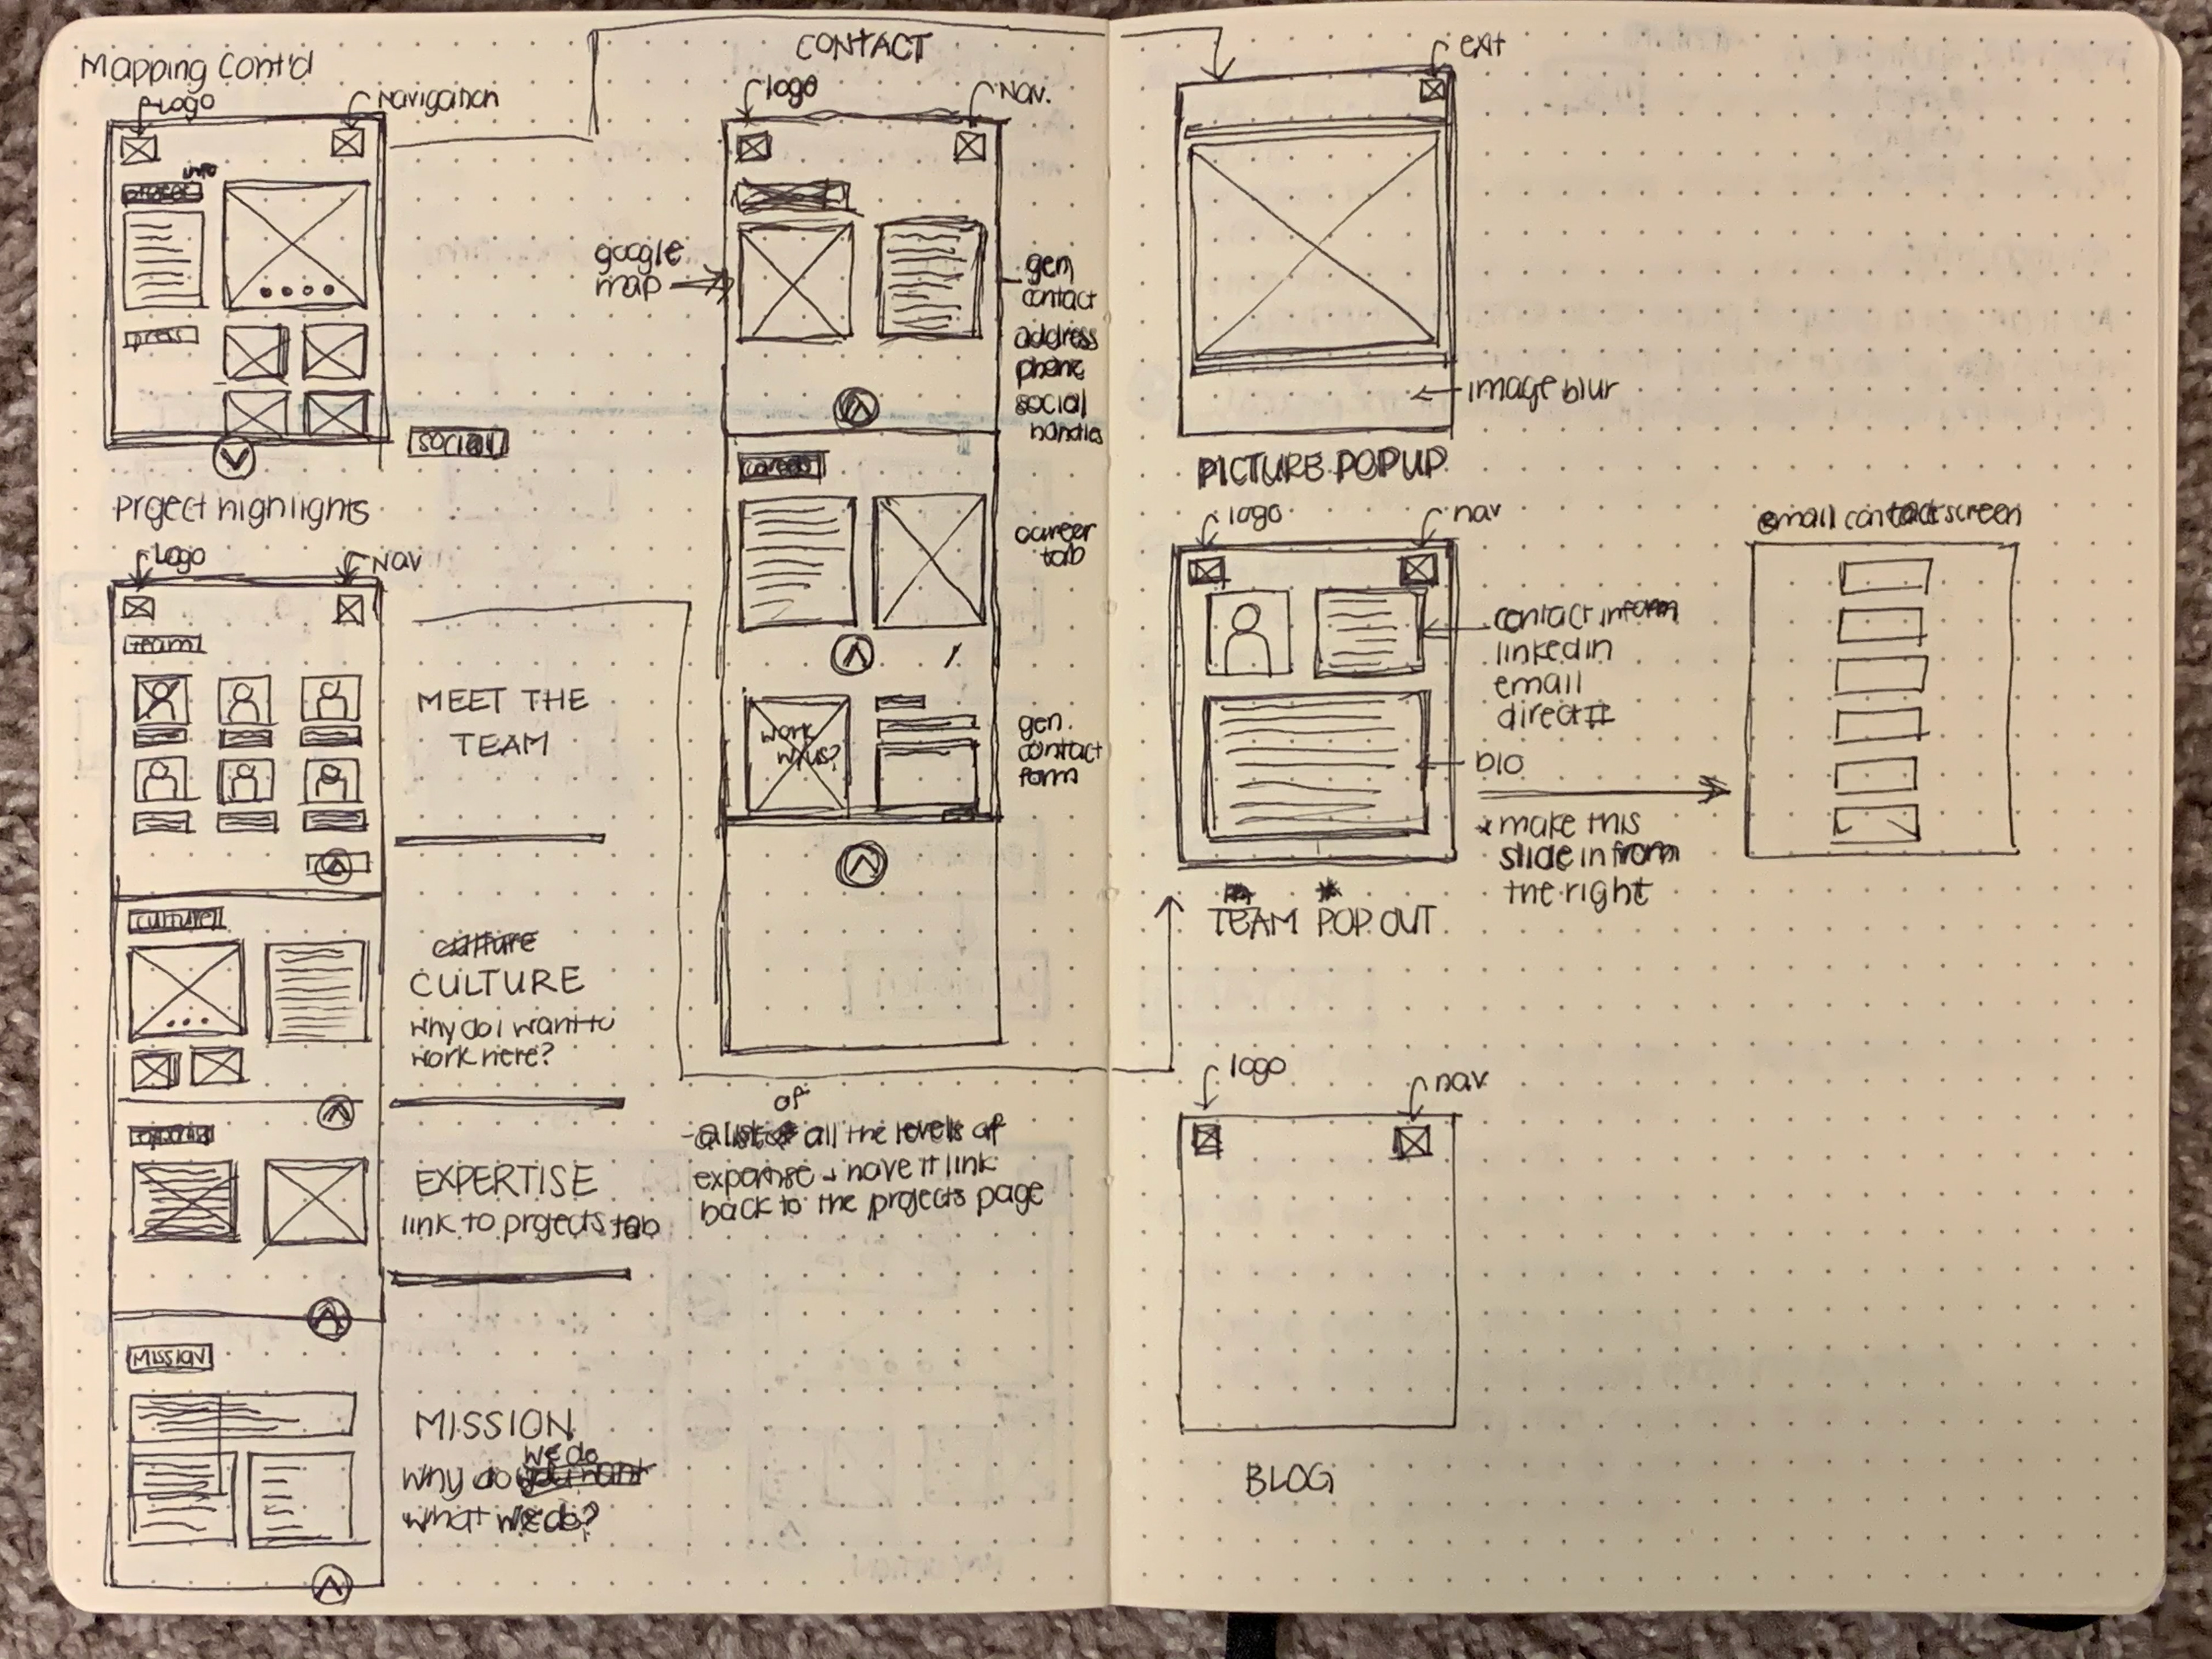 Mapping Cont'd
Logo
Navigation
info
project
press
social
Project highlights
Logo
Nav
team
MEET THE
TEAM
culture
culture
CULTURE
why do I want to
work here?
expertise
EXPERTISE
link to projects tab
MISSION
MISSION
we do
why do you want
what we do?
CONTACT
logo
Nav.
google
map
gen
contact
address
phone
social
handles
careers
career
tab
work
w/us?
gen.
contact
form
of
- a list of all the levels of
expertise + have it link
back to the projects page
exit
image blur
PICTURE POPUP
logo
nav
contact inform
linkedin
email
direct #
bio
* make this
slide in from
the right
TEAM POP OUT
email contact screen
logo
nav
BLOG